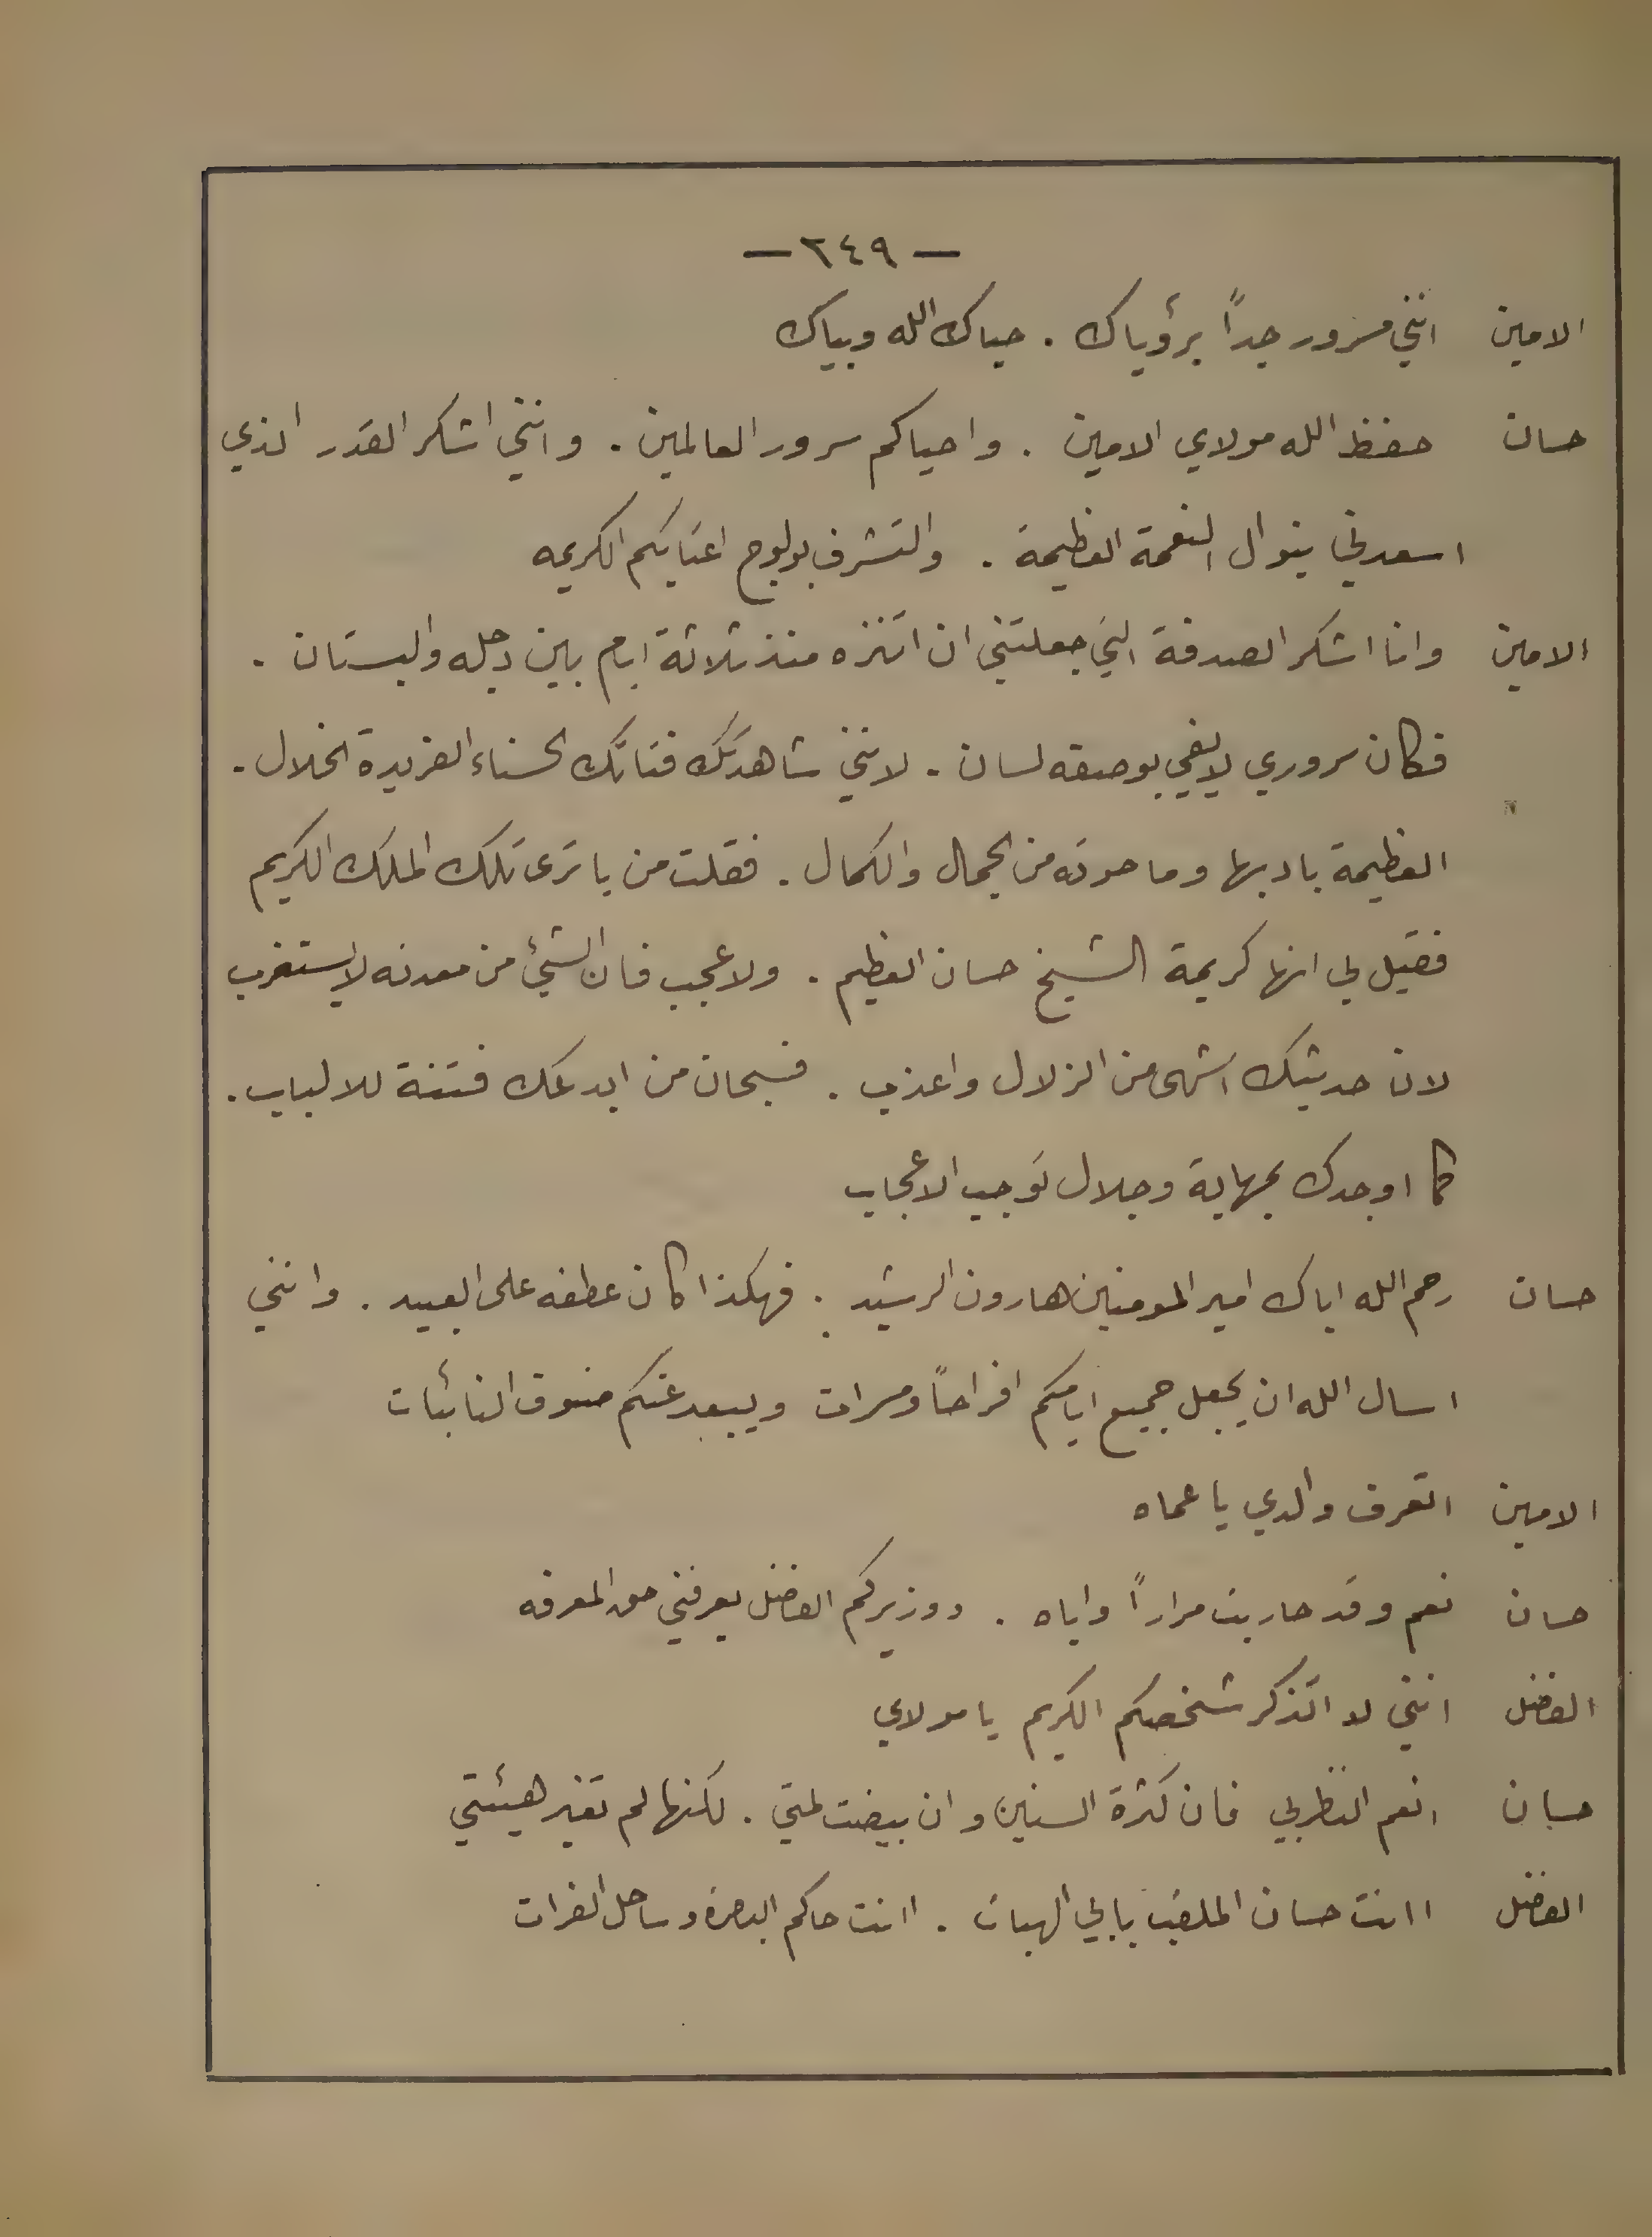 — ٢٤٩ —
الامين انني مسرور جداً برؤياك . حياك الله وبياك
حسان حفظ الله مولاي الامين . واحياكم سرور العالمين . وانني اشكر القدر الذي
اسعدني بنوال النعمة العظيمة . والتشرف بولوج اعتابكم الكريمه
الامين وانا اشكر الصدفة التي جعلتني ان اتنزه منذ ثلاثة ايام بين دجله والبستان .
فكان سروري لا يفي بوصفه لسان . لانني شاهدتك فتاتك الحسناء الفريدة الخلال .
العظيمة بادبها وما حوته من الجمال والكمال . فقلت من يا ترى تلك الملك الكريم
فقيل لي انها كريمة الشيخ حسان العظيم . ولا عجب فان الشيئ من معدنه لا يستغرب
لان حديثك اشهى من الزلال واعذب . فسبحان من ابدعك فتنة للالباب .
كما اوجدك بمهابة وجلال توجب الاعجاب
حسان رحم الله اباك امير المومنين هارون الرشيد . فهكذا كان عطفه على العبيد . وانني
اسال الله ان يجعل جميع ايامكم افراحاً ومسرات ويبعد عنكم صنوف النائبات
الامين اتعرف والدي يا عماه
حسان نعم وقد حاربت مراراً واياه . ووزيركم الفضل يعرفني حق المعرفه
الفضل انني لا اتذكر شخصكم الكريم يا مولاي
حسان انعم النظر بي فان كثرة السنين وان بيضت لمتي . لكنها لم تغير هيئتي
الفضل اانت حسان الملقب بابي الهبات . اانت حاكم البصرة وساحل الفرات